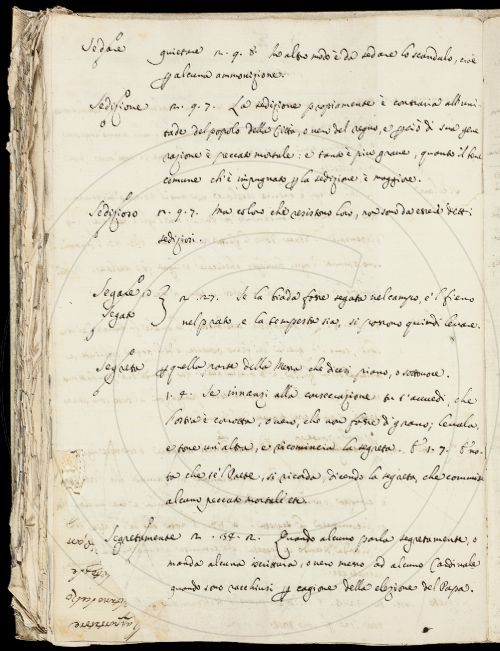 Sedare quietare 2. q. 8. In altro modo è da sedare lo scandalo, cioè
p alcuna ammonizione.
Sedizione 2. q. 7. La sedizione propiamente è contraria all'uni-
tade del popolo della Città, o uero del regno, e però di sua gene
razione è peccato mortale: e tanto è piu graue, quanto il bene
comune ch'è inpugnato p la sedizione è maggiore.
Sedizioso 2. q. 7. Ma coloro che resistono loro, non sono da essere detti
sediziosi.
Segare
Segato 2. 27. Se la biada fosse segata nel campo, e 'l fieno
nel prato, e la tempesta sia, si possono quindi leuare.
Segreta p quella parte della Messa che dicesi piano, o sottouoce.
1. 4. Se innanzi alla consecrazione tu t'auuedi, che
l'ostia è corrotta, o uero, che non fosse di grano; leuala,
e tone un'altra, e ricomincia la segreta. 1. 7.
ta che se 'l Prete, si ricorda, dicendo la segreta, che commise
alcuno peccato mortale etc.
Segretamente 2. 134. 2. Quando alcuno parla segretamente, o
manda alcuna scrittura, o uero messo ad alcuno Cardinale
quando sono racchiusi p cagione della elezione del Papa.